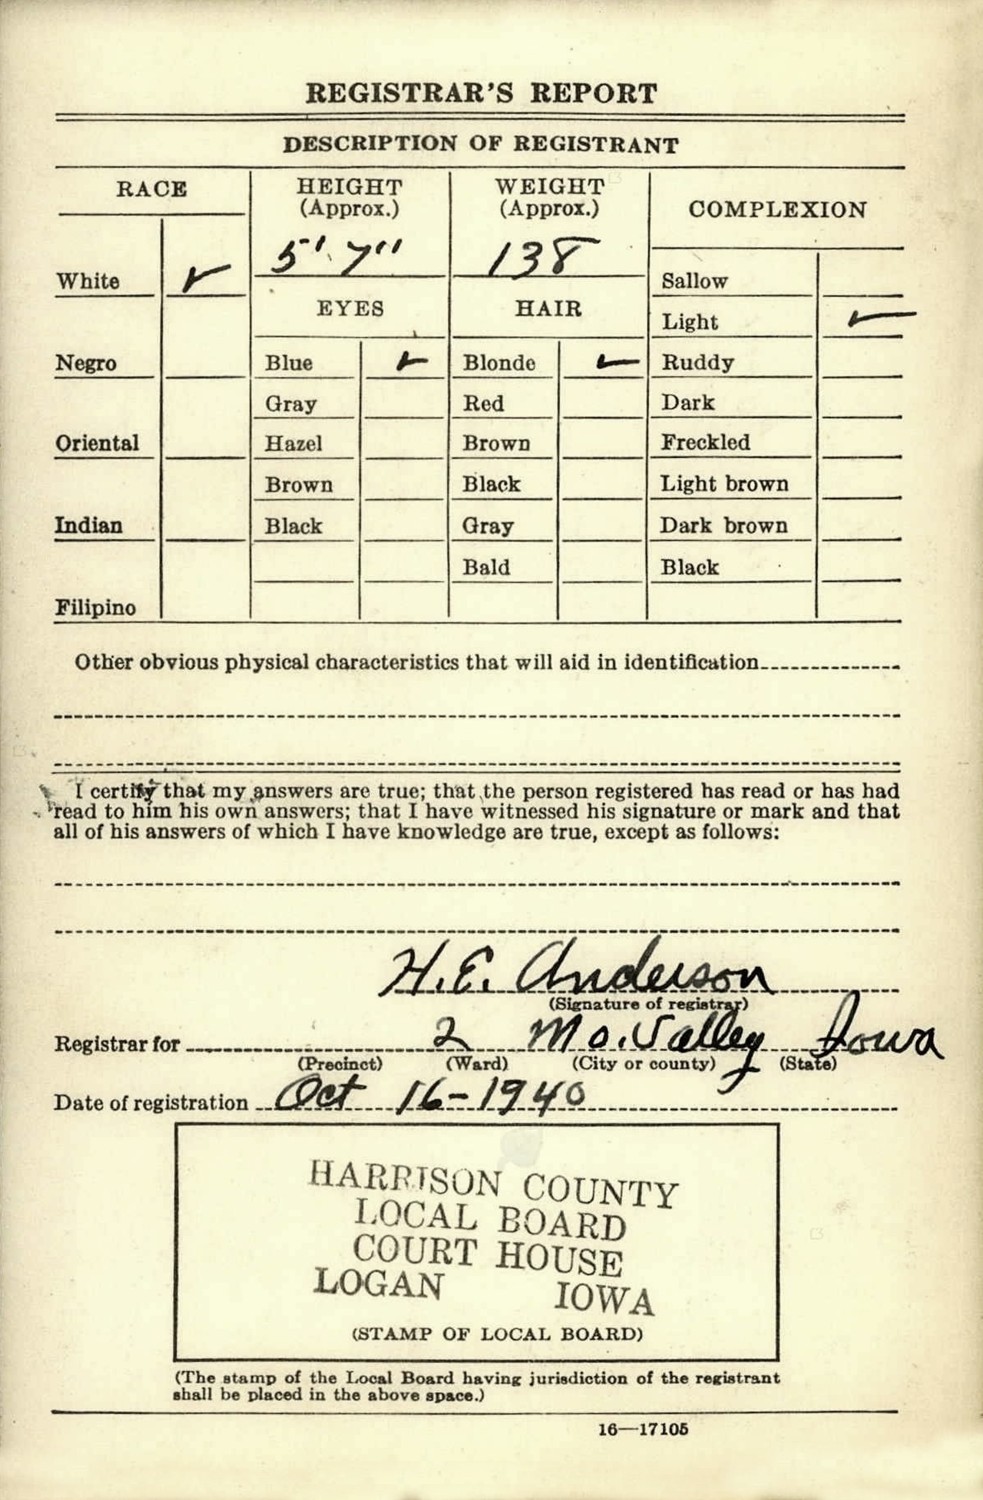 REGISTRAR'S REPORT
DESCRIPTION OF REGISTRANT
RACE
HEIGHT
(Approx.)
WEIGHT
(Approx.)
COMPLEXION
5' 7"
138
White ✓
EYES
HAIR
Sallow
Light ✓
Negro
Blue ✓
Blonde ✓
Ruddy
Gray
Red
Dark
Oriental
Hazel
Brown
Freckled
Brown
Black
Light brown
Indian
Black
Gray
Dark brown
Bald
Black
Filipino
Other obvious physical characteristics that will aid in identification
I certify that my answers are true; that the person registered has read or has had
read to him his own answers; that I have witnessed his signature or mark and that
all of his answers of which I have knowledge are true, except as follows:
H. E. Anderson
(Signature of registrar)
Registrar for 2 Mo. Valley Iowa
(Precinct) (Ward) (City or county) (State)
Date of registration Oct 16-1940
HARRISON COUNTY
LOCAL BOARD
COURT HOUSE
LOGAN IOWA
(STAMP OF LOCAL BOARD)
(The stamp of the Local Board having jurisdiction of the registrant
shall be placed in the above space.)
16—17105